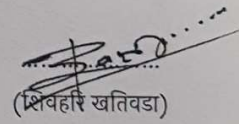 (शिवहरि खतिवडा)